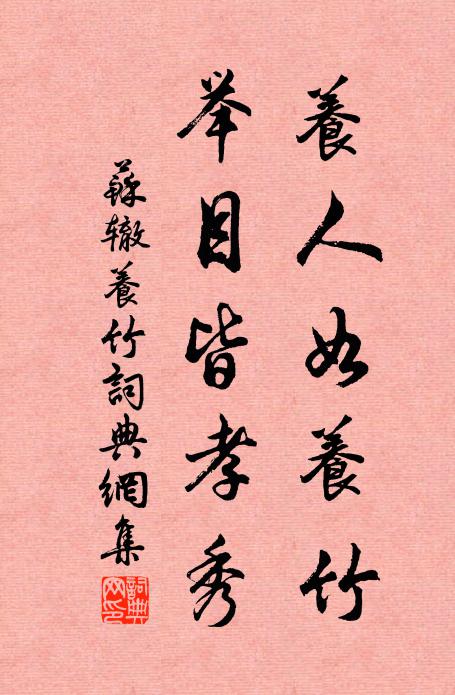 養人如養竹
举目皆孝秀
蘇辙養竹詞典網集
詞典網印